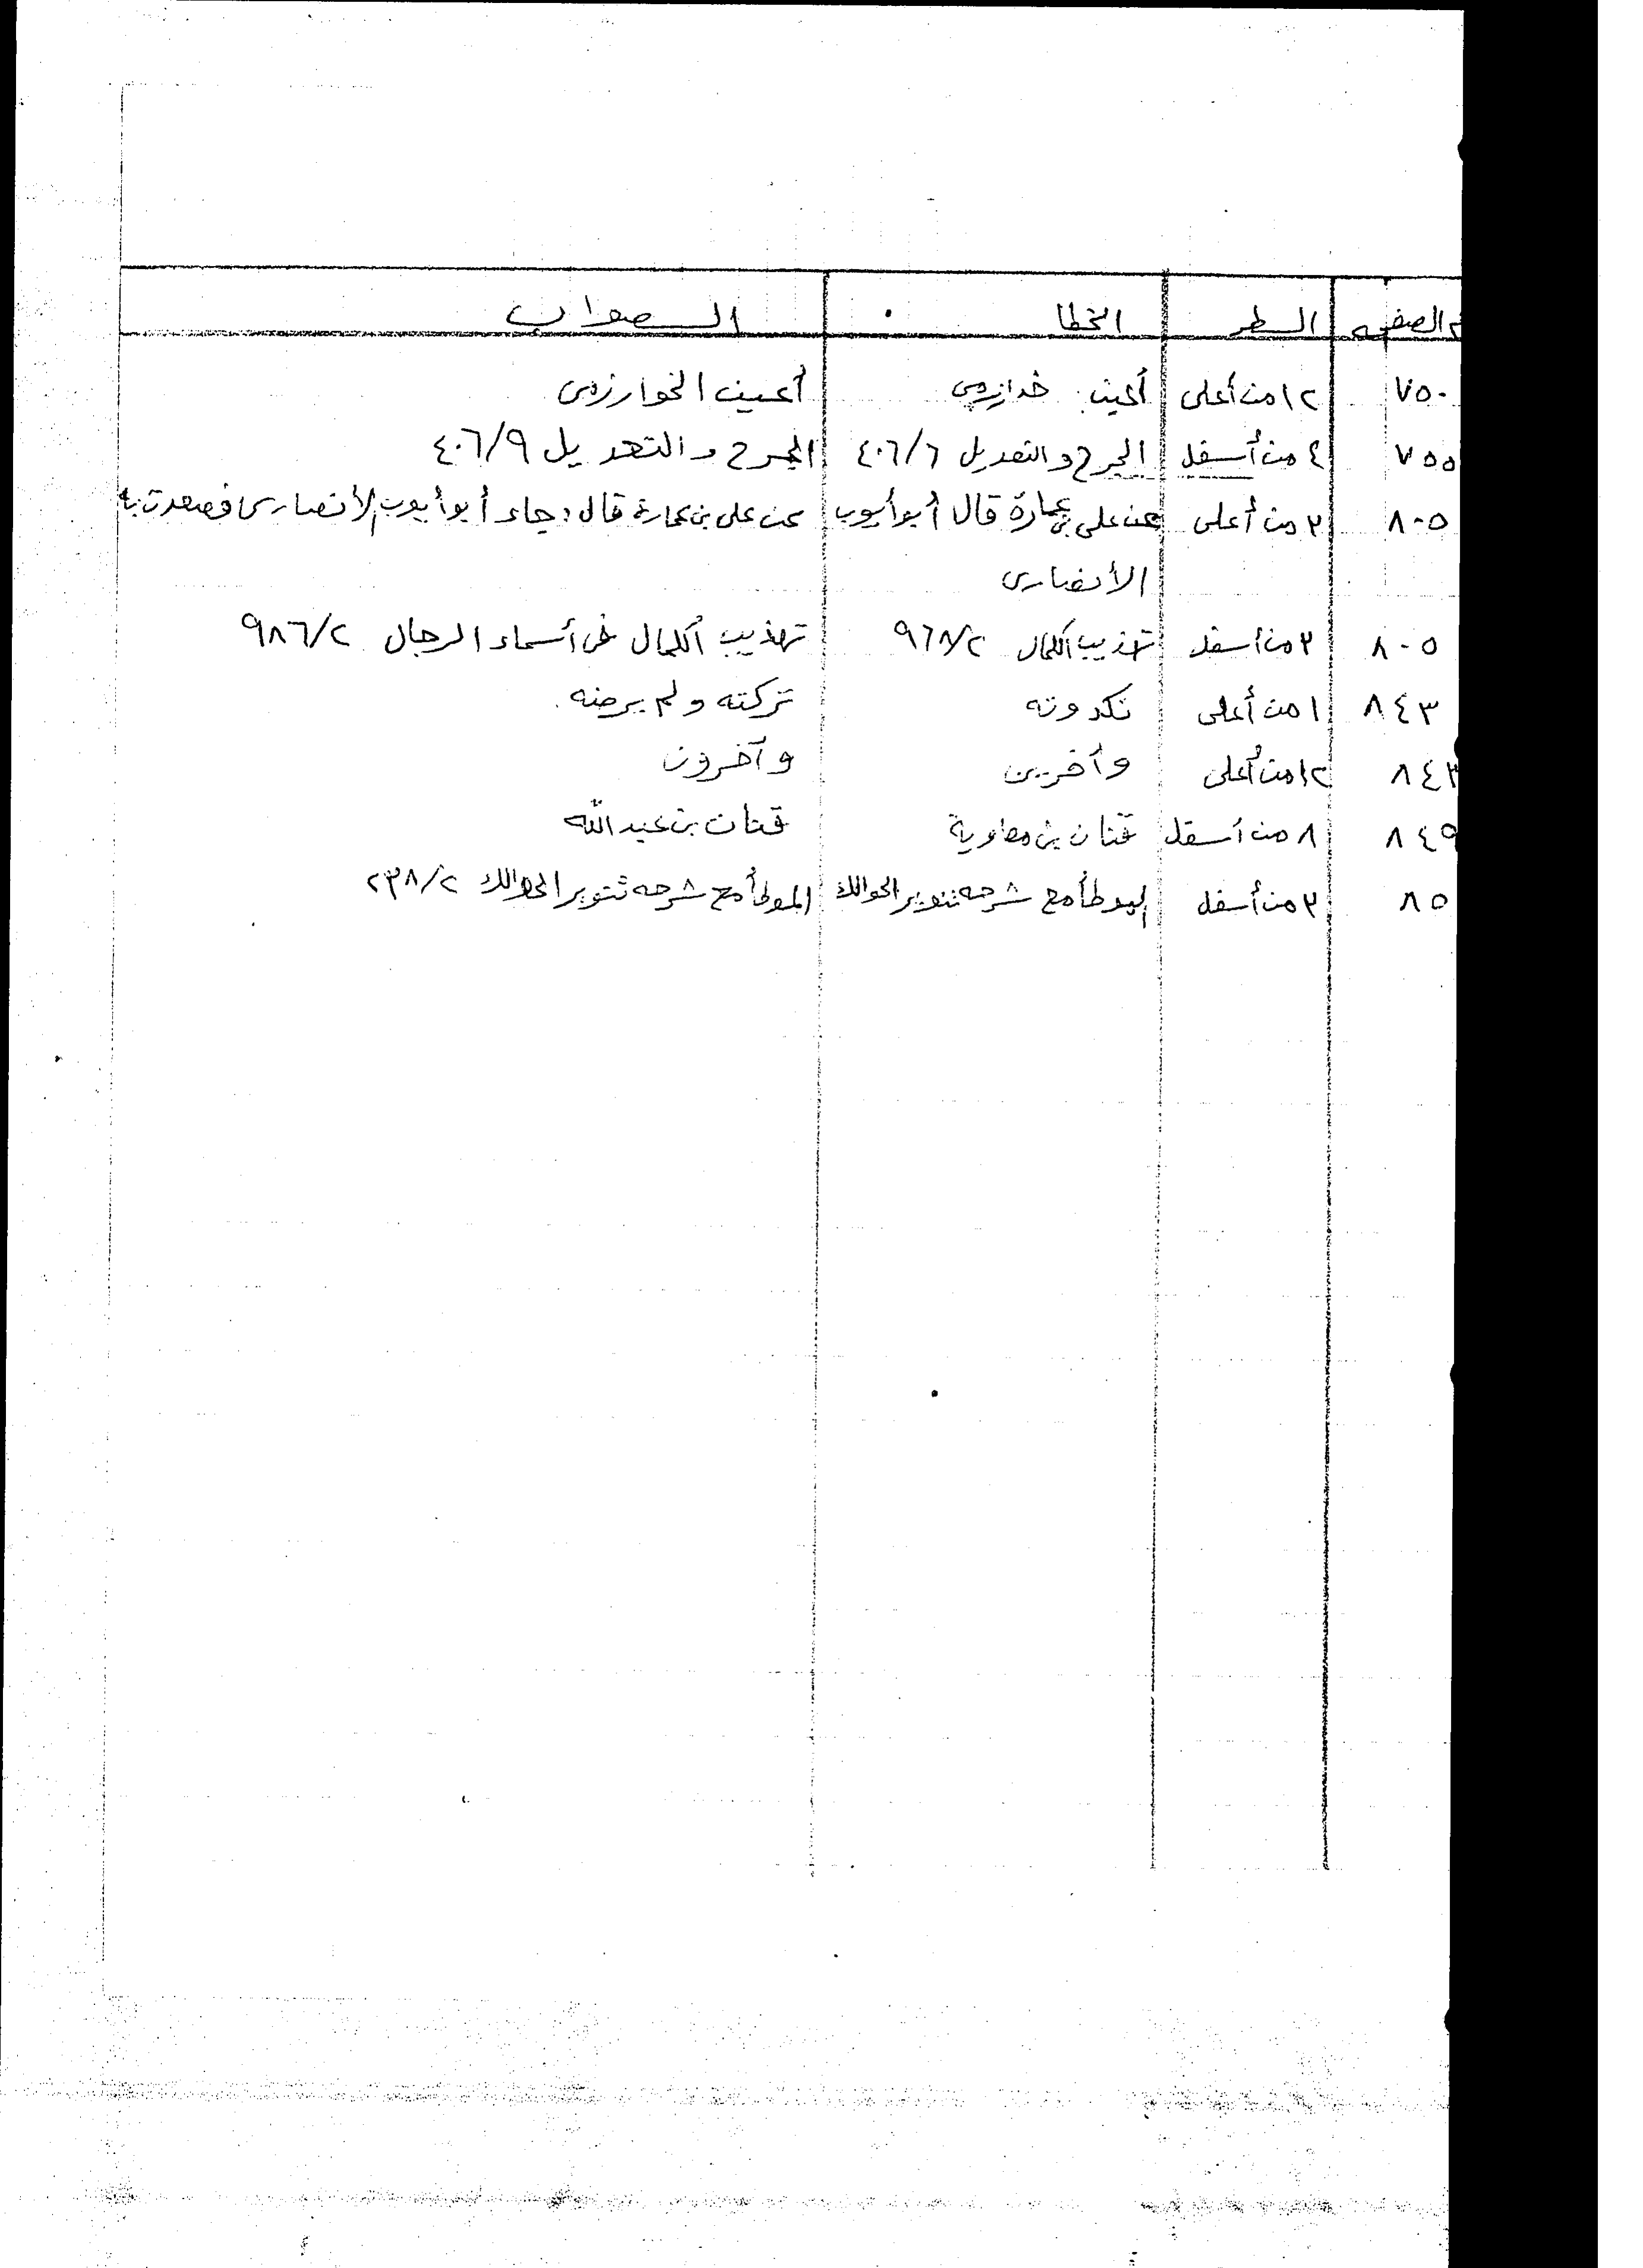 الصفحه السطر الخطا الصواب
٧٥٠ ١٢ من أعلى أعين خوارزمى أعين الخوارزمى
٧٥٥ ٤ من أسفل الجرح والتعديل ٤٠٦/٦ الجرح والتعديل ٤٠٦/٩
٨٠٥ ٣ من أعلى عن على بن عمارة قال أبو أيوب عن على بن عمارة قال : جاء أبو أيوب الأنصارى فصعدت به
الأنصارى
٨٠٥ ٣ من أسفل تهذيب الكمال ٩٦٨/٢ تهذيب الكمال فى أسماء الرجال ٩٨٦/٢
٨٤٣ ١ من أعلى نكدوته تركته ولم يرضه
٨٤٣ ١٢ من أعلى وآخرين وآخرون
٨٤٩ ٨ من أسفل قنان بن معاوية قنان بن عبد الله
٨٥ ٣ من أسفل الموطأ مع شرحه تنوير الحوالك الموطأ مع شرحه تنوير الحوالك ٢٣٨/٢